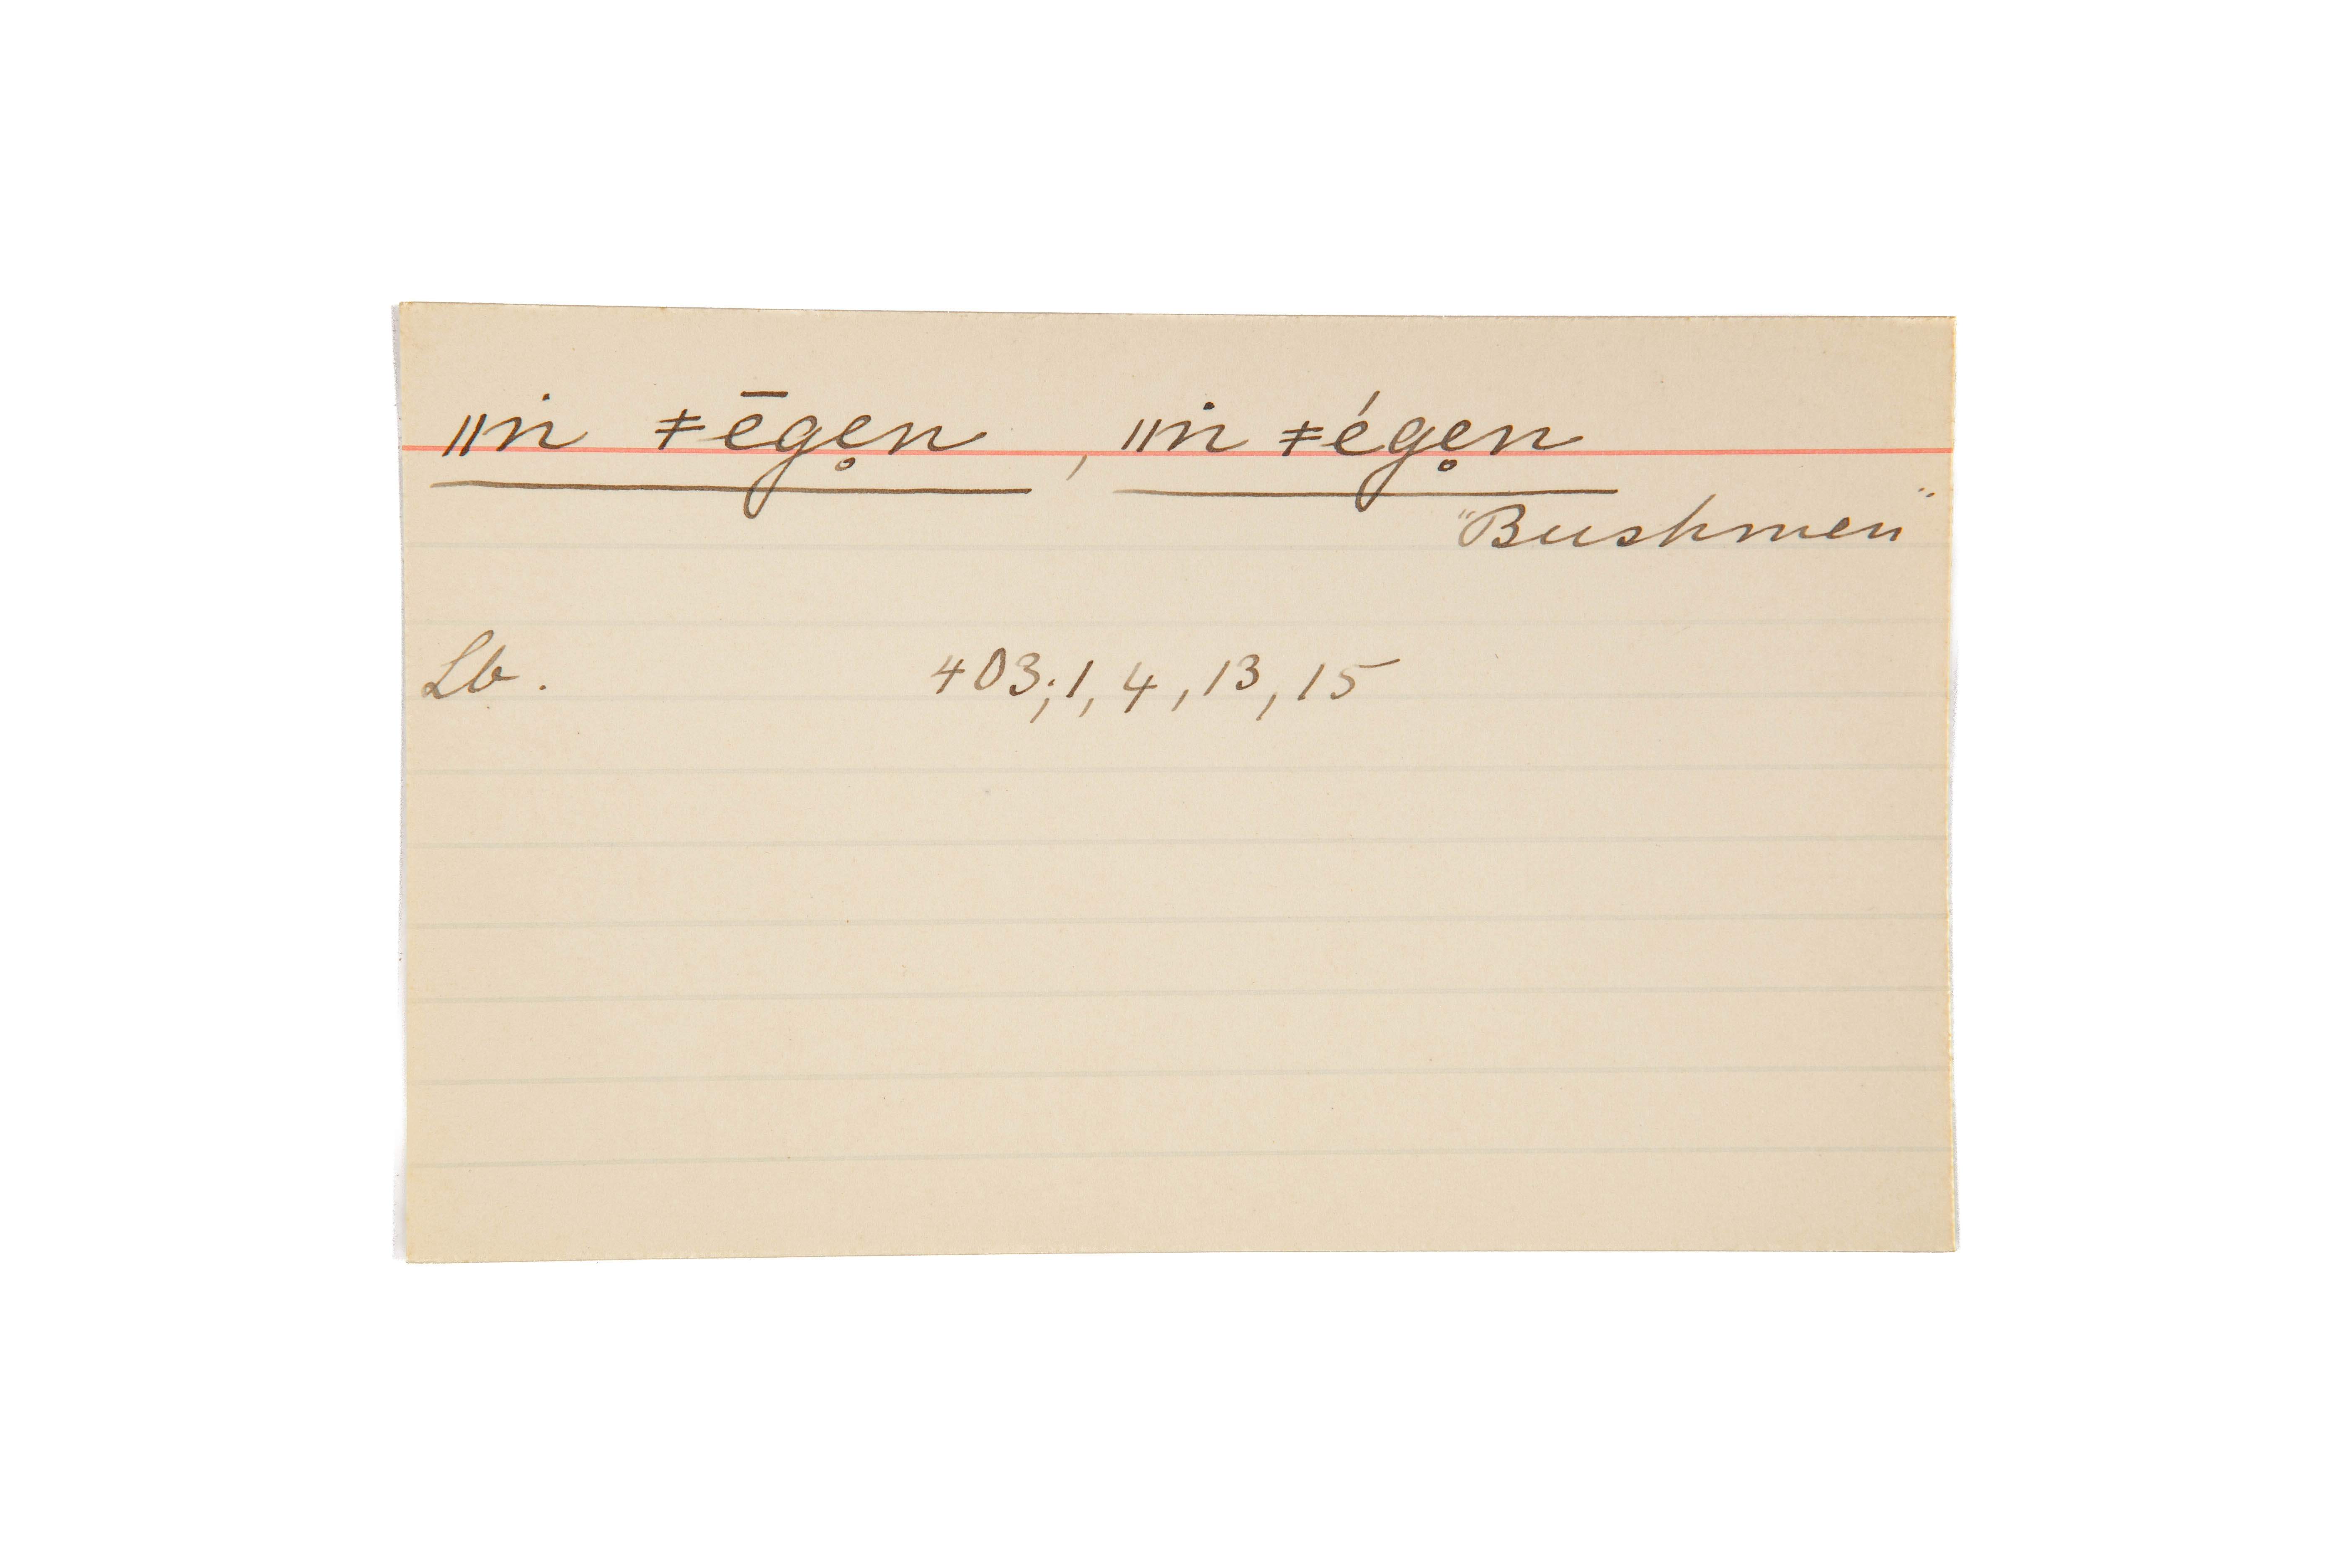 ǁin ǂēge̥n, ǁin ǂége̥n
"Bushmen"
Lb. 403;1, 4, 13, 15